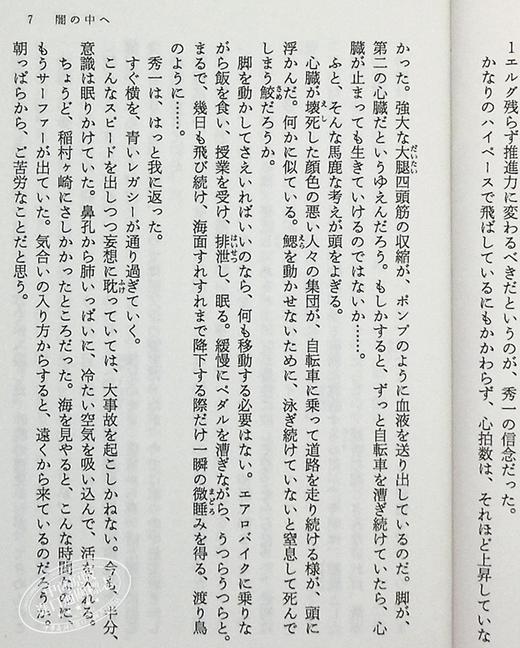 1エルダ残らず推進力に変わるべきだというのが、秀一の信念だった。
かなりのハイペースで飛ばしているにもかかわらず、心拍数は、それほど上昇していな
7 闇の中へ
かった。強大な大腿四頭筋の収縮が、ポンプのように血液を送り出しているのだ。脚が、
第二の心臓だというゆえんだろう。もしかすると、ずっと自転車を漕ぎ続けていたら、心
臓が止まっても生きていけるのではないか……。
ふと、そんな馬鹿な考えが頭をよぎる。
心臓が壊死した顔色の悪い人々の集団が、自転車に乗って道路を走り続ける様が、頭に
浮かんだ。何かに似ている。鰓を動かせないために、泳ぎ続けていないと窒息して死んで
しまう鮫だろうか。
脚を動かしてさえいればいいのなら、何も移動する必要はない。エアロバイクに乗りな
がら飯を食い、授業を受け、排泄し、眠る。緩慢にペダルを漕ぎながら、うつらうつらと。
まるで、幾日も飛び続け、海面すれすれまで降下する際だけ一瞬の微睡みを得る、渡り鳥
のように……。
秀一は、はっと我に返った。
すぐ横を、青いレガシーが通り過ぎていく。
こんなスピードを出しつつ妄想に耽っていては、大事故を起こしかねない。今も、半分、
意識は眠りかけていた。鼻孔から肺いっぱいに、冷たい空気を吸い込んで、活を入れる。
ちょうど、稲村ヶ崎にさしかかったところだった。海を見やると、こんな時間なのに、
もうサーファーが出ていた。気合いの入り方からすると、遠くから来ているのだろうか。
朝っぱらから、ご苦労なことだと思う。